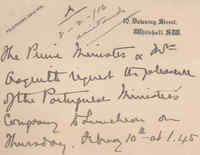 10, Downing Street,
Whitehall, S.W.
The Prime Minister & Mrs
Asquith request the pleasure
of the Portuguese Minister's
Company to Luncheon on
Thursday, February 10th at 1.45